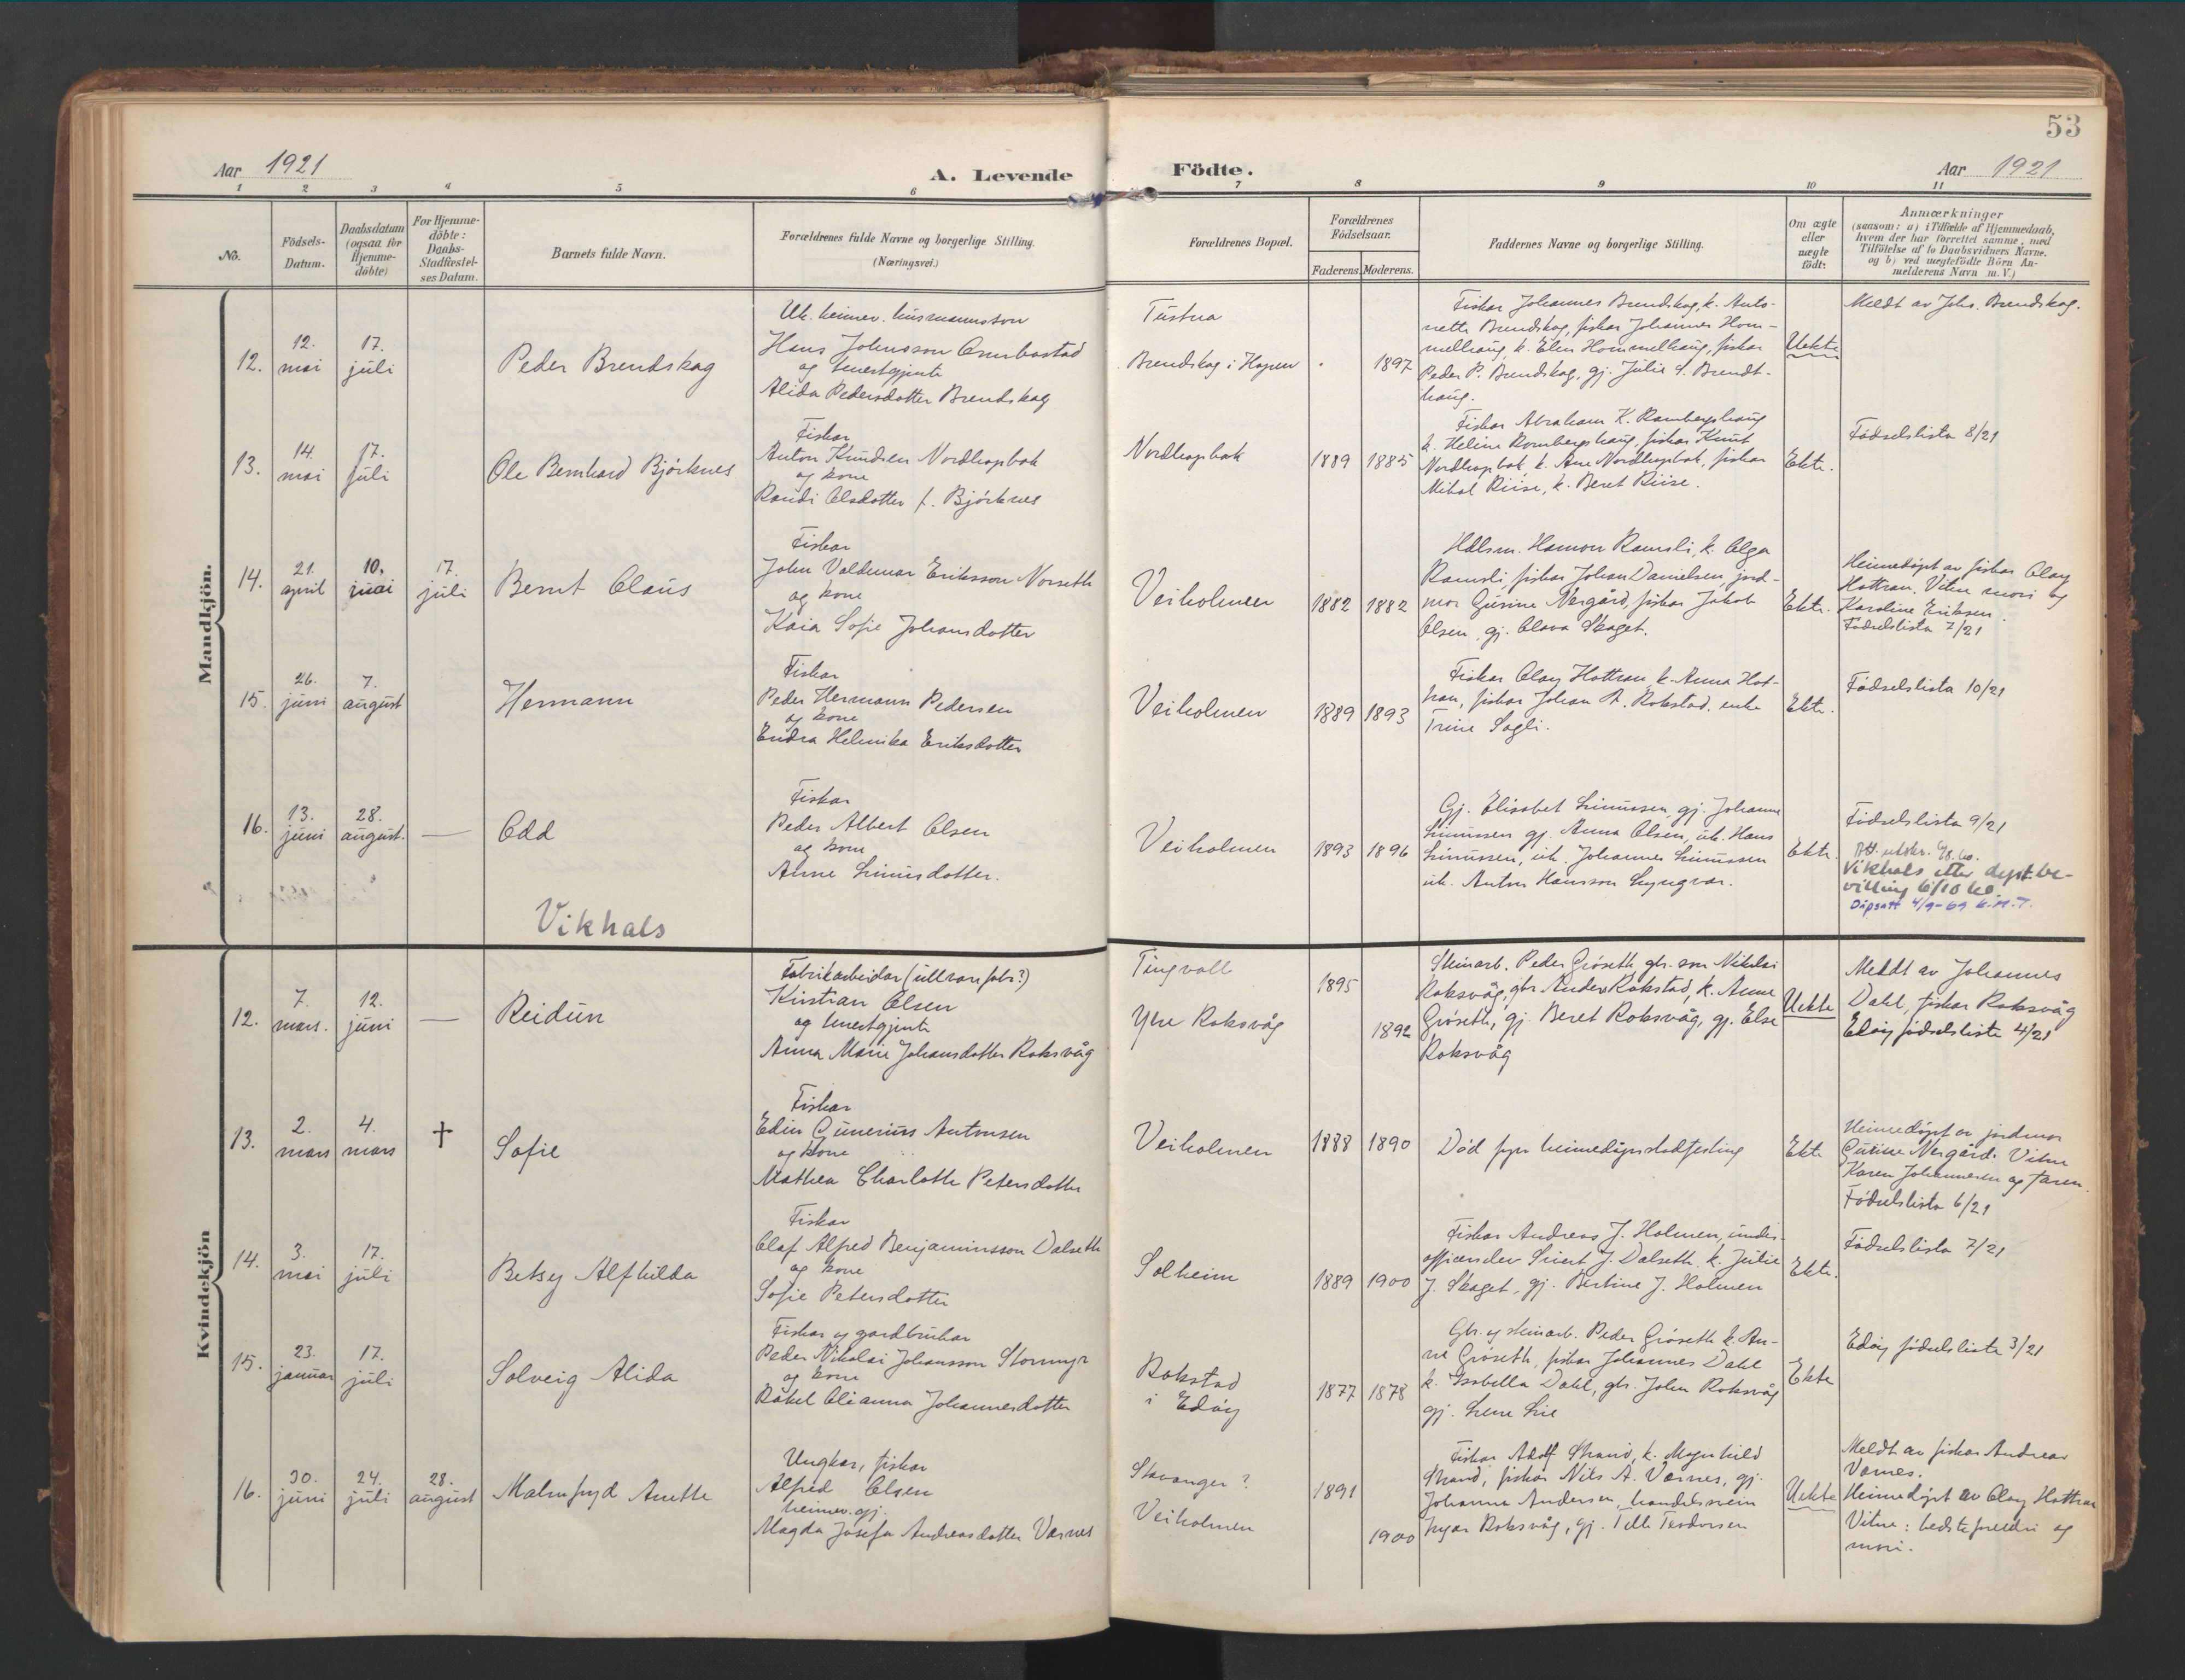 53
Aar 1921
A. Levende
Födte.
Aar 1921
1 2 3 4 5 6 7 8 9 10 11
No.
Födsels-Datum.
Daabsdatum (ogsaa for Hjemme-döbte)
For Hjemme-döbte: Daabs-Stadfæstel-ses Datum.
Barnets fulde Navn.
Forældrenes fulde Navne og borgerlige Stilling.
(Næringsvei.)
Forældrenes Bopæl.
Forældrenes Födselsaar.
Faderens. Moderens.
Faddernes Navne og borgerlige Stilling.
Om ægte eller uægte födt:
Anmærkninger
(saasom: a) i Tilfælde af Hjemmedaab,
hvem der har forrettet samme, med
Tilföielse af to Daabsvidners Navne.
og b) ved uægtefödte Börn An-
melderens Navn m. V.)
Mandkjön.
12.
12. mai
17. juli
Peder Brendskag
Uk. heimev. husmannsson
Hans Johnsson
og tenestgjente
Alida Pedersdotter Brendskag
Tustna
Brendskag i Hopen
1897
Fiskar Johannes Brendskag, k. Anto-
nette Brendskag, fiskar Johannes Hom-
melhaug, k. Elen Hommelhaug, fiskar
Peder P. Brendskag, gj. Julie S. Brendt-
haug.
Uekte
Meldt av Johs. Brendskag.
13.
14. mai
17. juli
Ole Bernhard Bjórknes
Fiskar
Anton Knudsen Nordhopbak
og kone
Randi Olsdotter f. Bjórknes
Nordhopbak
1889
1885
Fiskar Abraham K. Rambergshaug
k. Heline Rambergshaug, fiskar Knut
Nordhopbak, k. Ane Nordhopbak, fiskar
Mikal Riise, k. Beret Riise.
Ekte.
Fódselslista 8/21
14.
21. april
10. juni
17. juli
Bernt Claus
Fiskar
John Valdemar Eriksson Norseth
og kone
Kaia Sofie Johansdotter
Veiholmen
1882
1882
Hdlsm. Hamon Ramsli, k. Olga
Ramsli, fiskar Johan Danielsen, jord-
mor Gurine Nergård, fiskar Jakob
Olsen, gj. Olava Skaget.
Ekte.
Heimedøpt av fiskar Olav
Hottran. Vitne mori og
Karoline Eriksen.
Fódselslista 7/21
15.
26. juni
7. august
Hermann
Fiskar
Peder Hermann Pedersen
og kone
Endra Helmika Eriksdotter
Veiholmen
1889
1893
Fiskar Olav Hottran k. Anna Hot-
tran, fiskar Johan A. Rokstad, enke
Trine Sagli.
Ekte.
Fódselslista 10/21
16.
13. juni
28. august.
—
Odd
Fiskar
Peder Albert Olsen
og kone
Anne Linusdotter.
Vikhals
Veiholmen
1893
1896
Gj. Elisabet Linussen, gj. Johanne
Linussen gj. Anna Olsen, uk. Hans
Linussen, uk. Johannes Linussen
uk. Anton Hansson Lyngvær.
Ekte.
Fódselslista 9/21
Att. utskr.
Vikhals etter dept. be-
villing 6/10 60.
Dåpsatt 4/9-69 K.M.T.
Kvindekjön
12.
7. mars.
12. juni
—
Reidun
Fabrikarbeidar (ullvarefabr?)
Kristian Olsen
og tenestgjente
Anna Marie Johansdotter Roksvåg
Tingvoll
Ytre Roksvåg
1895
1892
Steinarb. Peder Gróseth gbr. son Nikolai
Roksvåg, gbr. Anders Rokstad, k. Anne
Gróseth, gj. Beret Roksvåg, gj. Else
Roksvåg
Uekte
Meldt av Johannes
Dahl, fiskar Roksvåg
Edóy fódselsliste 4/21
13.
2. mars
4. mars
†
Sofie
Fiskar
Edin Gunerius Antonsen
og kone
Mathea Charlotte Petersdotter
Veiholmen
1888
1890
Død fyr heimedåpsstadfesting
Ekte
Heimedøpt av jordmor
Gurine Nergård. Vitne
Karen Johannesen og faren.
Fódselslista 6/21
14.
3. mai
17. juli
Betsy Alfhilda
Fiskar
Olaf Alfred Benjaminsson Dalseth
og kone
Sofie Petersdotter
Solheim
1889
1900
Fiskar Andreas J. Holmen, under-
officerselev Sivert J. Dalseth, k. Julie
J. Skaget, gj. Bertine J. Holmen
Ekte.
Fódselslista 7/21
15.
23. januar
17. juli
Solveig Alida
Fiskar og gardbrukar
Peder Nikolai Johansson Stormyr
og kone
Rakel Oleanna Johannesdotter
Rokstad
i Edóy
1877
1878
Gbr. og steinarb. Peder Gróseth k. An-
ne Gróseth, fiskar Johannes Dahl
k. Isabella Dahl, gbr. John Roksvåg
gj. Lene Lie
Ekte
Edóy fódselsliste 3/21
16.
30. juni
24. juli
28. august
Malmfryd Anette
Ungkar, fiskar
Alfred Olsen
heimev. gj.
Magda Josefa Andreasdotter Værnes
Stavanger?
Veiholmen
1891
1900
Fiskar Adolf Strand, k. Magnhild
Strand, fiskar Nils A. Værnes, gj.
Johanna Andersen, handelsmein
Ingar Roksvåg, gj. Tilla Teodorsen
Uekte
Meldt av fiskar Andreas
Værnes.
Heimedøpt av Olav Hottran
Vitne: besteforeldri og
mori.